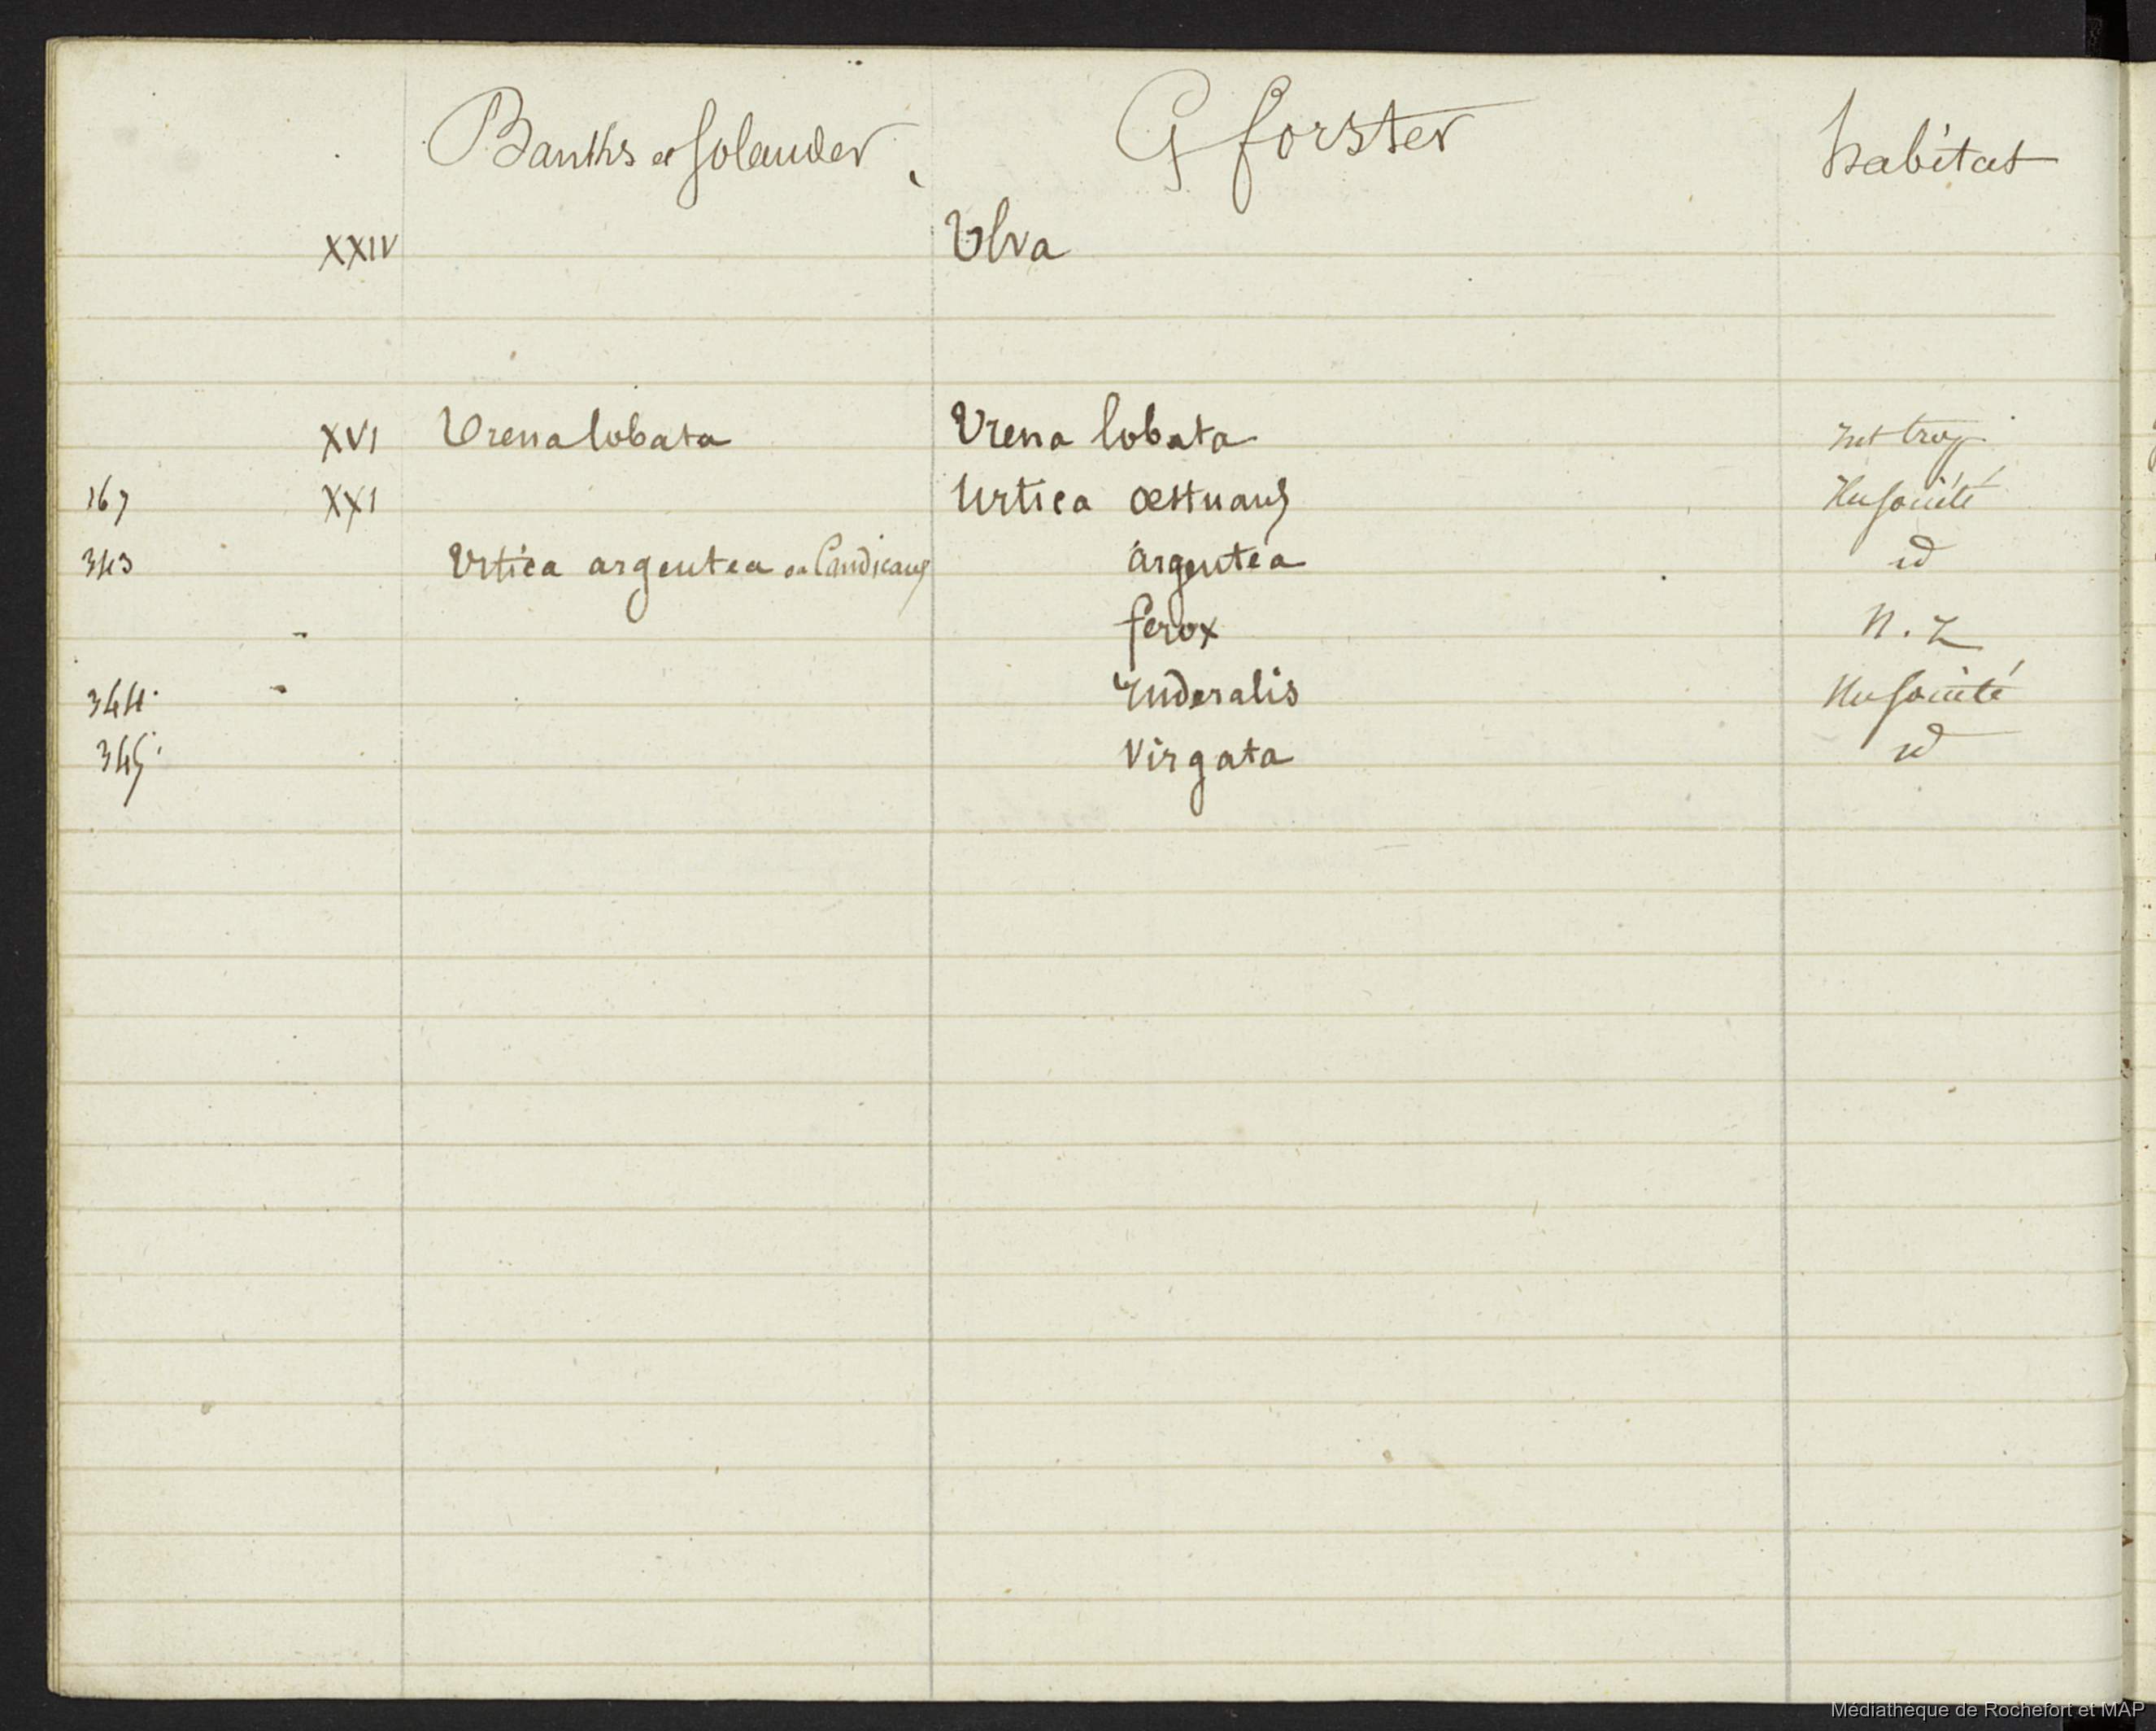 Banths et Solander G forster habitat
XXIV Ulva
XVI Urena lobata Urena lobata trop
167 XXI Urtica œstuans Société
343 Urtica argentea ou Candicans argentea id
ferox N. Z
344. ruderalis Société
345. Virgata id
Médiathèque de Rochefort et MAP